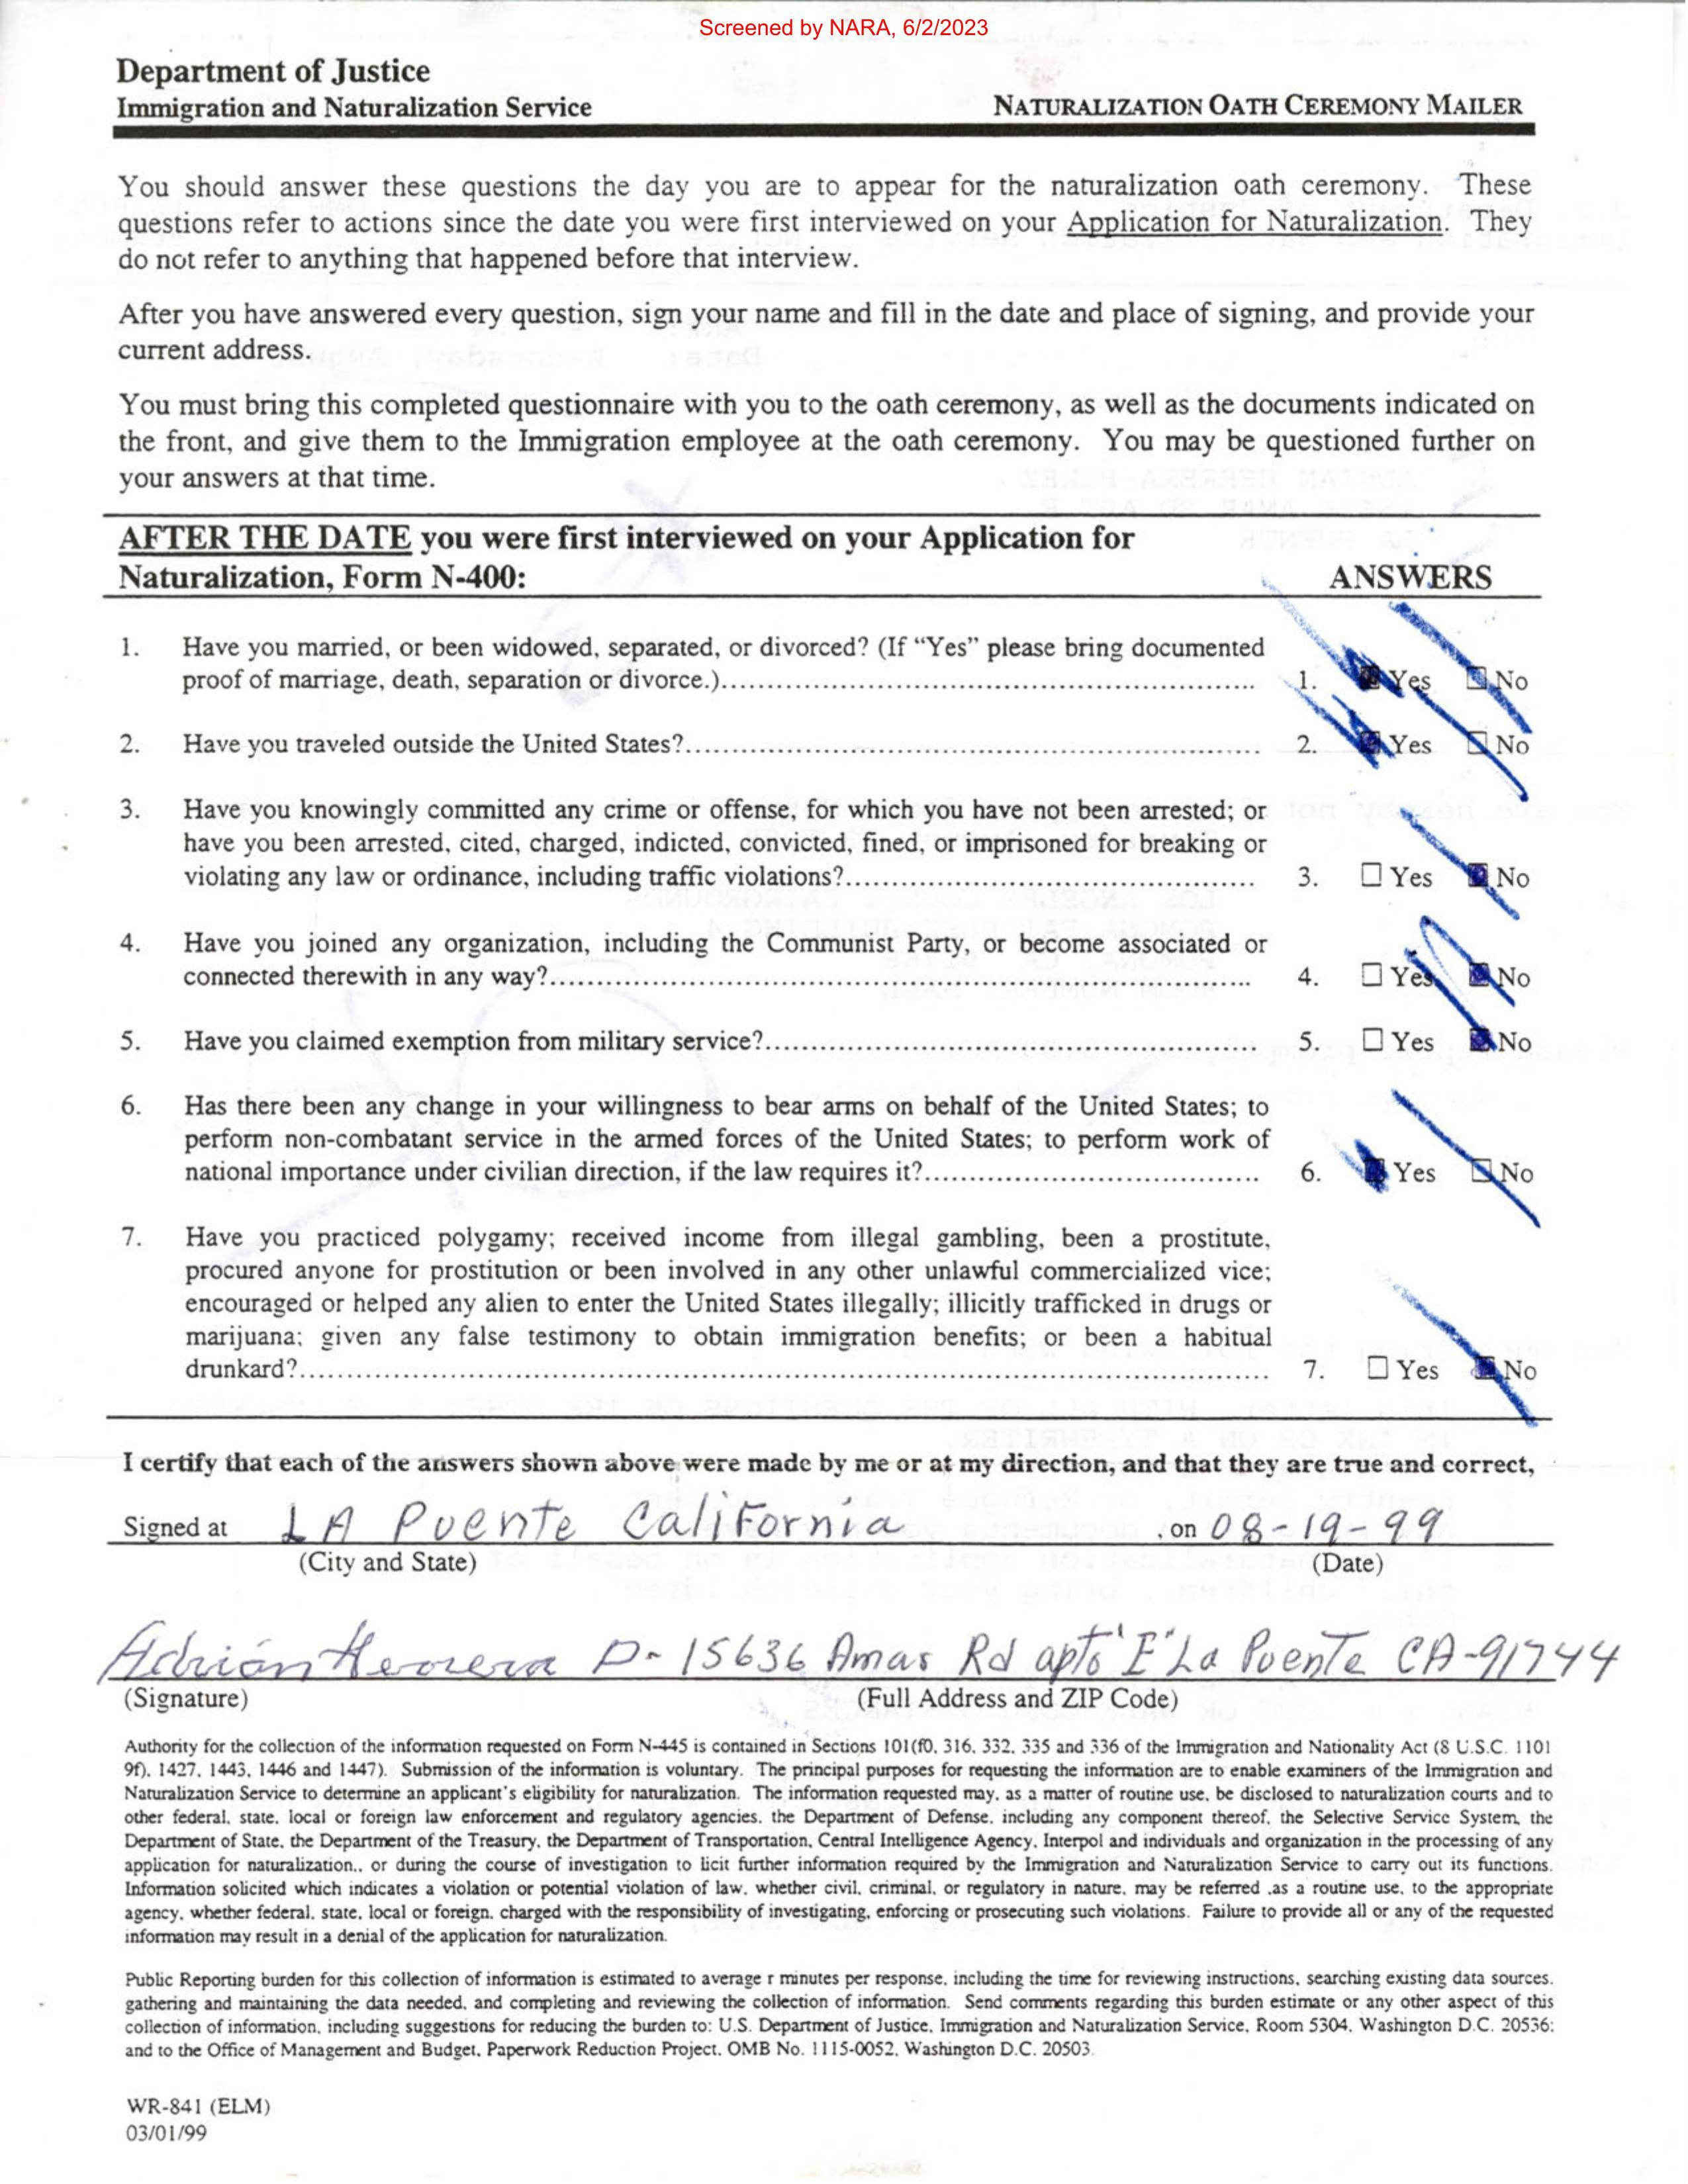 Screened by NARA, 6/2/2023
Department of Justice
Immigration and Naturalization Service NATURALIZATION OATH CEREMONY MAILER
You should answer these questions the day you are to appear for the naturalization oath ceremony. These
questions refer to actions since the date you were first interviewed on your Application for Naturalization. They
do not refer to anything that happened before that interview.
After you have answered every question, sign your name and fill in the date and place of signing, and provide your
current address.
You must bring this completed questionnaire with you to the oath ceremony, as well as the documents indicated on
the front, and give them to the Immigration employee at the oath ceremony. You may be questioned further on
your answers at that time.
AFTER THE DATE you were first interviewed on your Application for
Naturalization, Form N-400: ANSWERS
1. Have you married, or been widowed, separated, or divorced? (If “Yes” please bring documented
proof of marriage, death, separation or divorce.) 1. Yes No
2. Have you traveled outside the United States? 2. Yes No
3. Have you knowingly committed any crime or offense, for which you have not been arrested; or
have you been arrested, cited, charged, indicted, convicted, fined, or imprisoned for breaking or
violating any law or ordinance, including traffic violations? 3. Yes No
4. Have you joined any organization, including the Communist Party, or become associated or
connected therewith in any way? 4. Yes No
5. Have you claimed exemption from military service? 5. Yes No
6. Has there been any change in your willingness to bear arms on behalf of the United States; to
perform non-combatant service in the armed forces of the United States; to perform work of
national importance under civilian direction, if the law requires it? 6. Yes No
7. Have you practiced polygamy; received income from illegal gambling, been a prostitute,
procured anyone for prostitution or been involved in any other unlawful commercialized vice;
encouraged or helped any alien to enter the United States illegally; illicitly trafficked in drugs or
marijuana; given any false testimony to obtain immigration benefits; or been a habitual
drunkard? 7. Yes No
I certify that each of the answers shown above were made by me or at my direction, and that they are true and correct,
Signed at LA Puente California , on 08-19-99
(City and State) (Date)
Adrián Herrera P- 15636 Amar Rd apto "E" La Puente CA-91744
(Signature) (Full Address and ZIP Code)
Authority for the collection of the information requested on Form N-445 is contained in Sections 101(f0, 316, 332, 335 and 336 of the Immigration and Nationality Act (8 U.S.C. 1101
9f), 1427, 1443, 1446 and 1447). Submission of the information is voluntary. The principal purposes for requesting the information are to enable examiners of the Immigration and
Naturalization Service to determine an applicant's eligibility for naturalization. The information requested may, as a matter of routine use, be disclosed to naturalization courts and to
other federal, state, local or foreign law enforcement and regulatory agencies, the Department of Defense, including any component thereof, the Selective Service System, the
Department of State, the Department of the Treasury, the Department of Transportation, Central Intelligence Agency, Interpol and individuals and organization in the processing of any
application for naturalization., or during the course of investigation to licit further information required by the Immigration and Naturalization Service to carry out its functions.
Information solicited which indicates a violation or potential violation of law, whether civil, criminal, or regulatory in nature, may be referred .as a routine use, to the appropriate
agency, whether federal, state, local or foreign, charged with the responsibility of investigating, enforcing or prosecuting such violations. Failure to provide all or any of the requested
information may result in a denial of the application for naturalization.
Public Reporting burden for this collection of information is estimated to average r minutes per response, including the time for reviewing instructions, searching existing data sources,
gathering and maintaining the data needed, and completing and reviewing the collection of information. Send comments regarding this burden estimate or any other aspect of this
collection of information, including suggestions for reducing the burden to: U.S. Department of Justice, Immigration and Naturalization Service, Room 5304, Washington D.C. 20536;
and to the Office of Management and Budget, Paperwork Reduction Project, OMB No. 1115-0052, Washington D.C. 20503.
WR-841 (ELM)
03/01/99